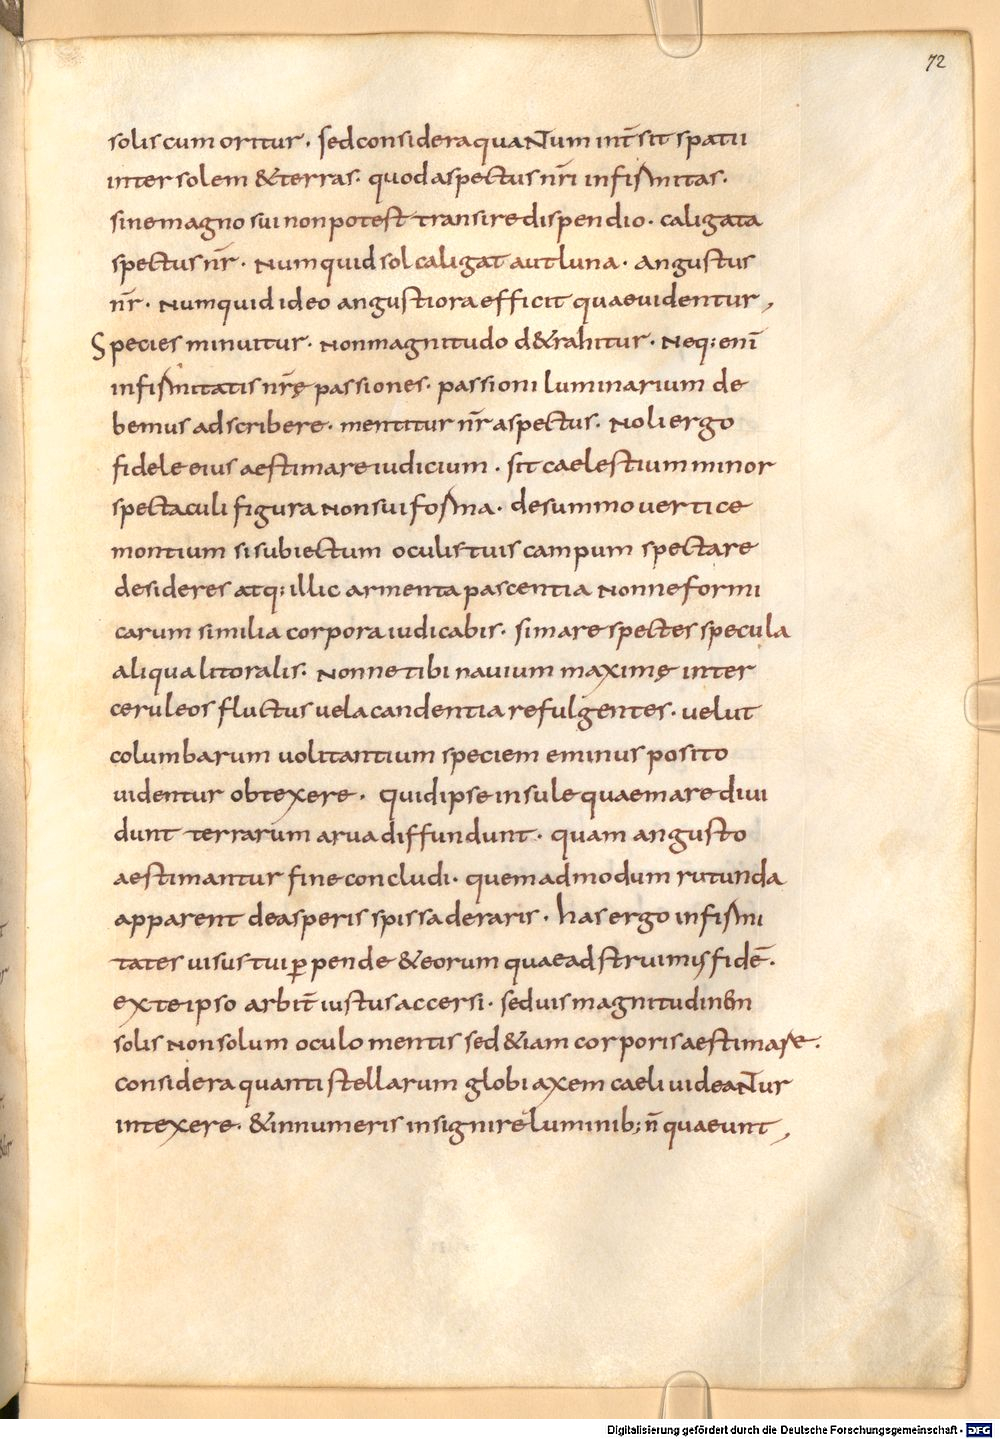 72
solis cum oritur. sed considera quantum int̄sit spatii
inter solem & terras. quod aspectus nr̄i infirmitas.
sine magno sui non potest transire dispendio. caligat a
spectus nr̄. Numquid sol caligat aut luna. angustus
nr̄. Numquid ideo angustiora efficit quae uidentur,
Species minuitur. Non magnitudo d&rahitur. Neq; eni̅
infirmitatis nr̄ę passiones. passioni luminarium de
bemus adscribere. mentitur nr̄ aspectus. Noli ergo
fidele eius aestimare iudicium. sit caelestium minor
spectaculi figura non sui forma. de summo uertice
montium si subiectum oculis tuis campum spectare
desideres atq; illic armenta pascentia Nonne formi
carum similia corpora iudicabis. si mare spectes specula
aliqua litoralis. Nonne tibi nauium maximę inter
ceruleos fluctus uela candentia refulgentes. uelut
columbarum uolitantium speciem eminus posito
uidentur obtexere. Quid ipse insule quae mare diui
dunt terrarum arua diffundunt. quam angusto
aestimantur fine concludi. quemadmodum rutunda
apparent de asperis spissa de raris. has ergo infirmi
tates uisus tui ꝑpende & eorum quae adstruimus fidē.
ex te ipso arbit̄ iustus accersi. sed uis magnitudinem
solis Non solum oculo mentis sed &iam corporis aestimare.
considera quanti stellarum globi axem caeli uideantur
intexere. & innumeris insignire luminib; n̄ quaeunt,
Digitalisierung gefördert durch die Deutsche Forschungsgemeinschaft - DFG